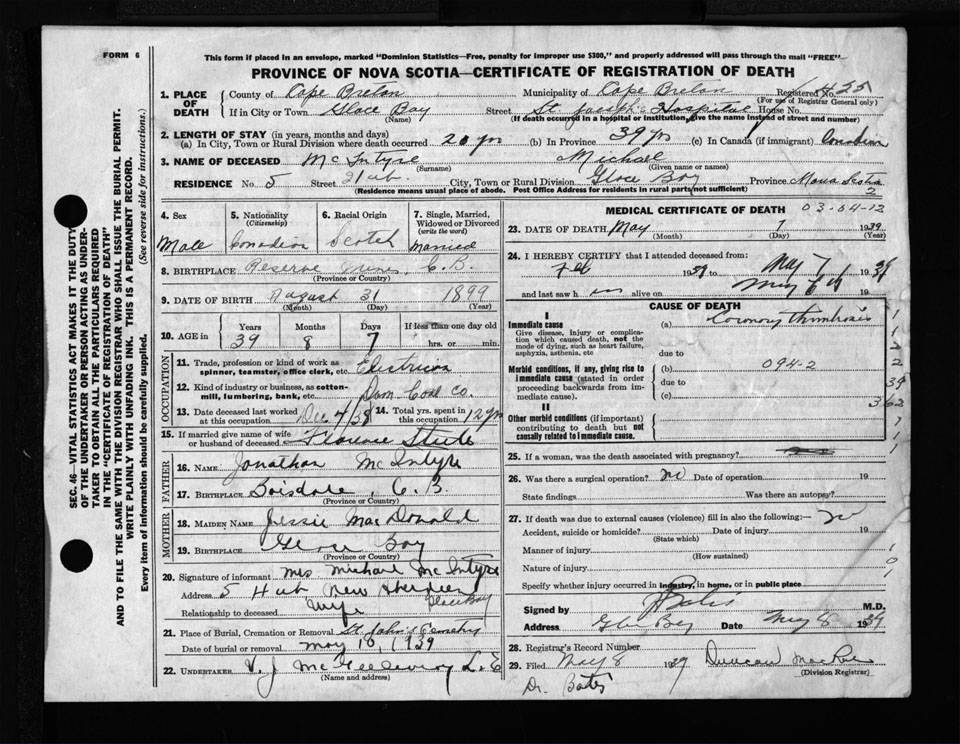 FORM 6
This form if placed in an envelope, marked "Dominion Statistics—Free, penalty for improper use $300," and properly addressed will pass through the mail "FREE"
PROVINCE OF NOVA SCOTIA—CERTIFICATE OF REGISTRATION OF DEATH
1. PLACE OF DEATH
County of Cape Breton Municipality of Cape Breton Registered No. 425
(For use of Registrar General only)
If in City or Town Glace Bay Street St. Joseph's Hospital House No.
(Name) (If death occurred in a hospital or institution, give the name instead of street and number)
2. LENGTH OF STAY (in years, months and days)
(a) In City, Town or Rural Division where death occurred 20 yrs (b) In Province 39 yrs (c) In Canada (if immigrant) Canadian
3. NAME OF DECEASED McIntyre Michael
(Surname) (Given name or names)
RESIDENCE No. 5 Street City, Town or Rural Division Glace Bay Province Nova Scotia
(Residence means usual place of abode. Post Office Address for residents in rural parts not sufficient) 2
4. Sex Male
5. Nationality (Citizenship) Canadian
6. Racial Origin Scotch
7. Single, Married, Widowed or Divorced (write the word) Married
8. BIRTHPLACE Reserve Mines, C.B.
(Province or Country)
9. DATE OF BIRTH August 31 1899
(Month) (Day) (Year)
10. AGE in Years Months Days If less than one day old
39 8 7 hrs. or min.
OCCUPATION
11. Trade, profession or kind of work as spinner, teamster, office clerk, etc. Electrician
12. Kind of industry or business, as cotton-mill, lumbering, bank, etc. Dom. Coal Co.
13. Date deceased last worked at this occupation Dec 4/38 14. Total yrs. spent in this occupation 12 yrs
15. If married give name of wife or husband of deceased Florence Steele
FATHER
16. NAME Jonathan McIntyre
17. BIRTHPLACE Boisdale, C.B.
(Province or Country)
MOTHER
18. MAIDEN NAME Jessie MacDonald
19. BIRTHPLACE Glace Bay
(Province or Country)
20. Signature of informant Mrs Michael McIntyre
Address 5 New Aberdeen Glace Bay
Relationship to deceased Wife
21. Place of Burial, Cremation or Removal St. John's Cemetery
Date of burial or removal May 10, 1939
22. UNDERTAKER V. J. McGillivray
(Name and address)
MEDICAL CERTIFICATE OF DEATH 03-04-12
23. DATE OF DEATH May 7 1939
(Month) (Day) (Year)
24. I HEREBY CERTIFY that I attended deceased from:
Feb 1938 to May 7 1939
and last saw h im alive on May 6th 19
CAUSE OF DEATH
I
Immediate cause (a) Coronary thrombosis
Give disease, injury or complication which caused death, not the mode of dying, such as heart failure, asphyxia, asthenia, etc
due to
Morbid conditions, if any, giving rise to immediate cause (stated in order proceeding backwards from immediate cause).
(b) 094-2
due to
(c)
II
Other morbid conditions (if important) contributing to death but not causally related to immediate cause.
25. If a woman, was the death associated with pregnancy?
26. Was there a surgical operation? no Date of operation 19
State findings Was there an autopsy?
27. If death was due to external causes (violence) fill in also the following:— no
Accident, suicide or homicide? Date of injury 19
(State which)
Manner of injury
(How sustained)
Nature of injury
Specify whether injury occurred in industry, in home, or in public place
Signed by Bates M.D.
Address Glace Bay Date May 8 1939
28. Registrar's Record Number
29. Filed May 8 1939 Duncan MacRae
(Division Registrar)
Dr. Bates
SEC. 46—VITAL STATISTICS ACT MAKES IT THE DUTY
OF THE UNDERTAKER OR PERSON ACTING AS UNDER-
TAKER TO OBTAIN ALL THE PARTICULARS REQUIRED
IN THE "CERTIFICATE OF REGISTRATION OF DEATH"
AND TO FILE THE SAME WITH THE DIVISION REGISTRAR WHO SHALL ISSUE THE BURIAL PERMIT.
WRITE PLAINLY WITH UNFADING INK. THIS IS A PERMANENT RECORD.
Every item of information should be carefully supplied. (See reverse side for instructions.)